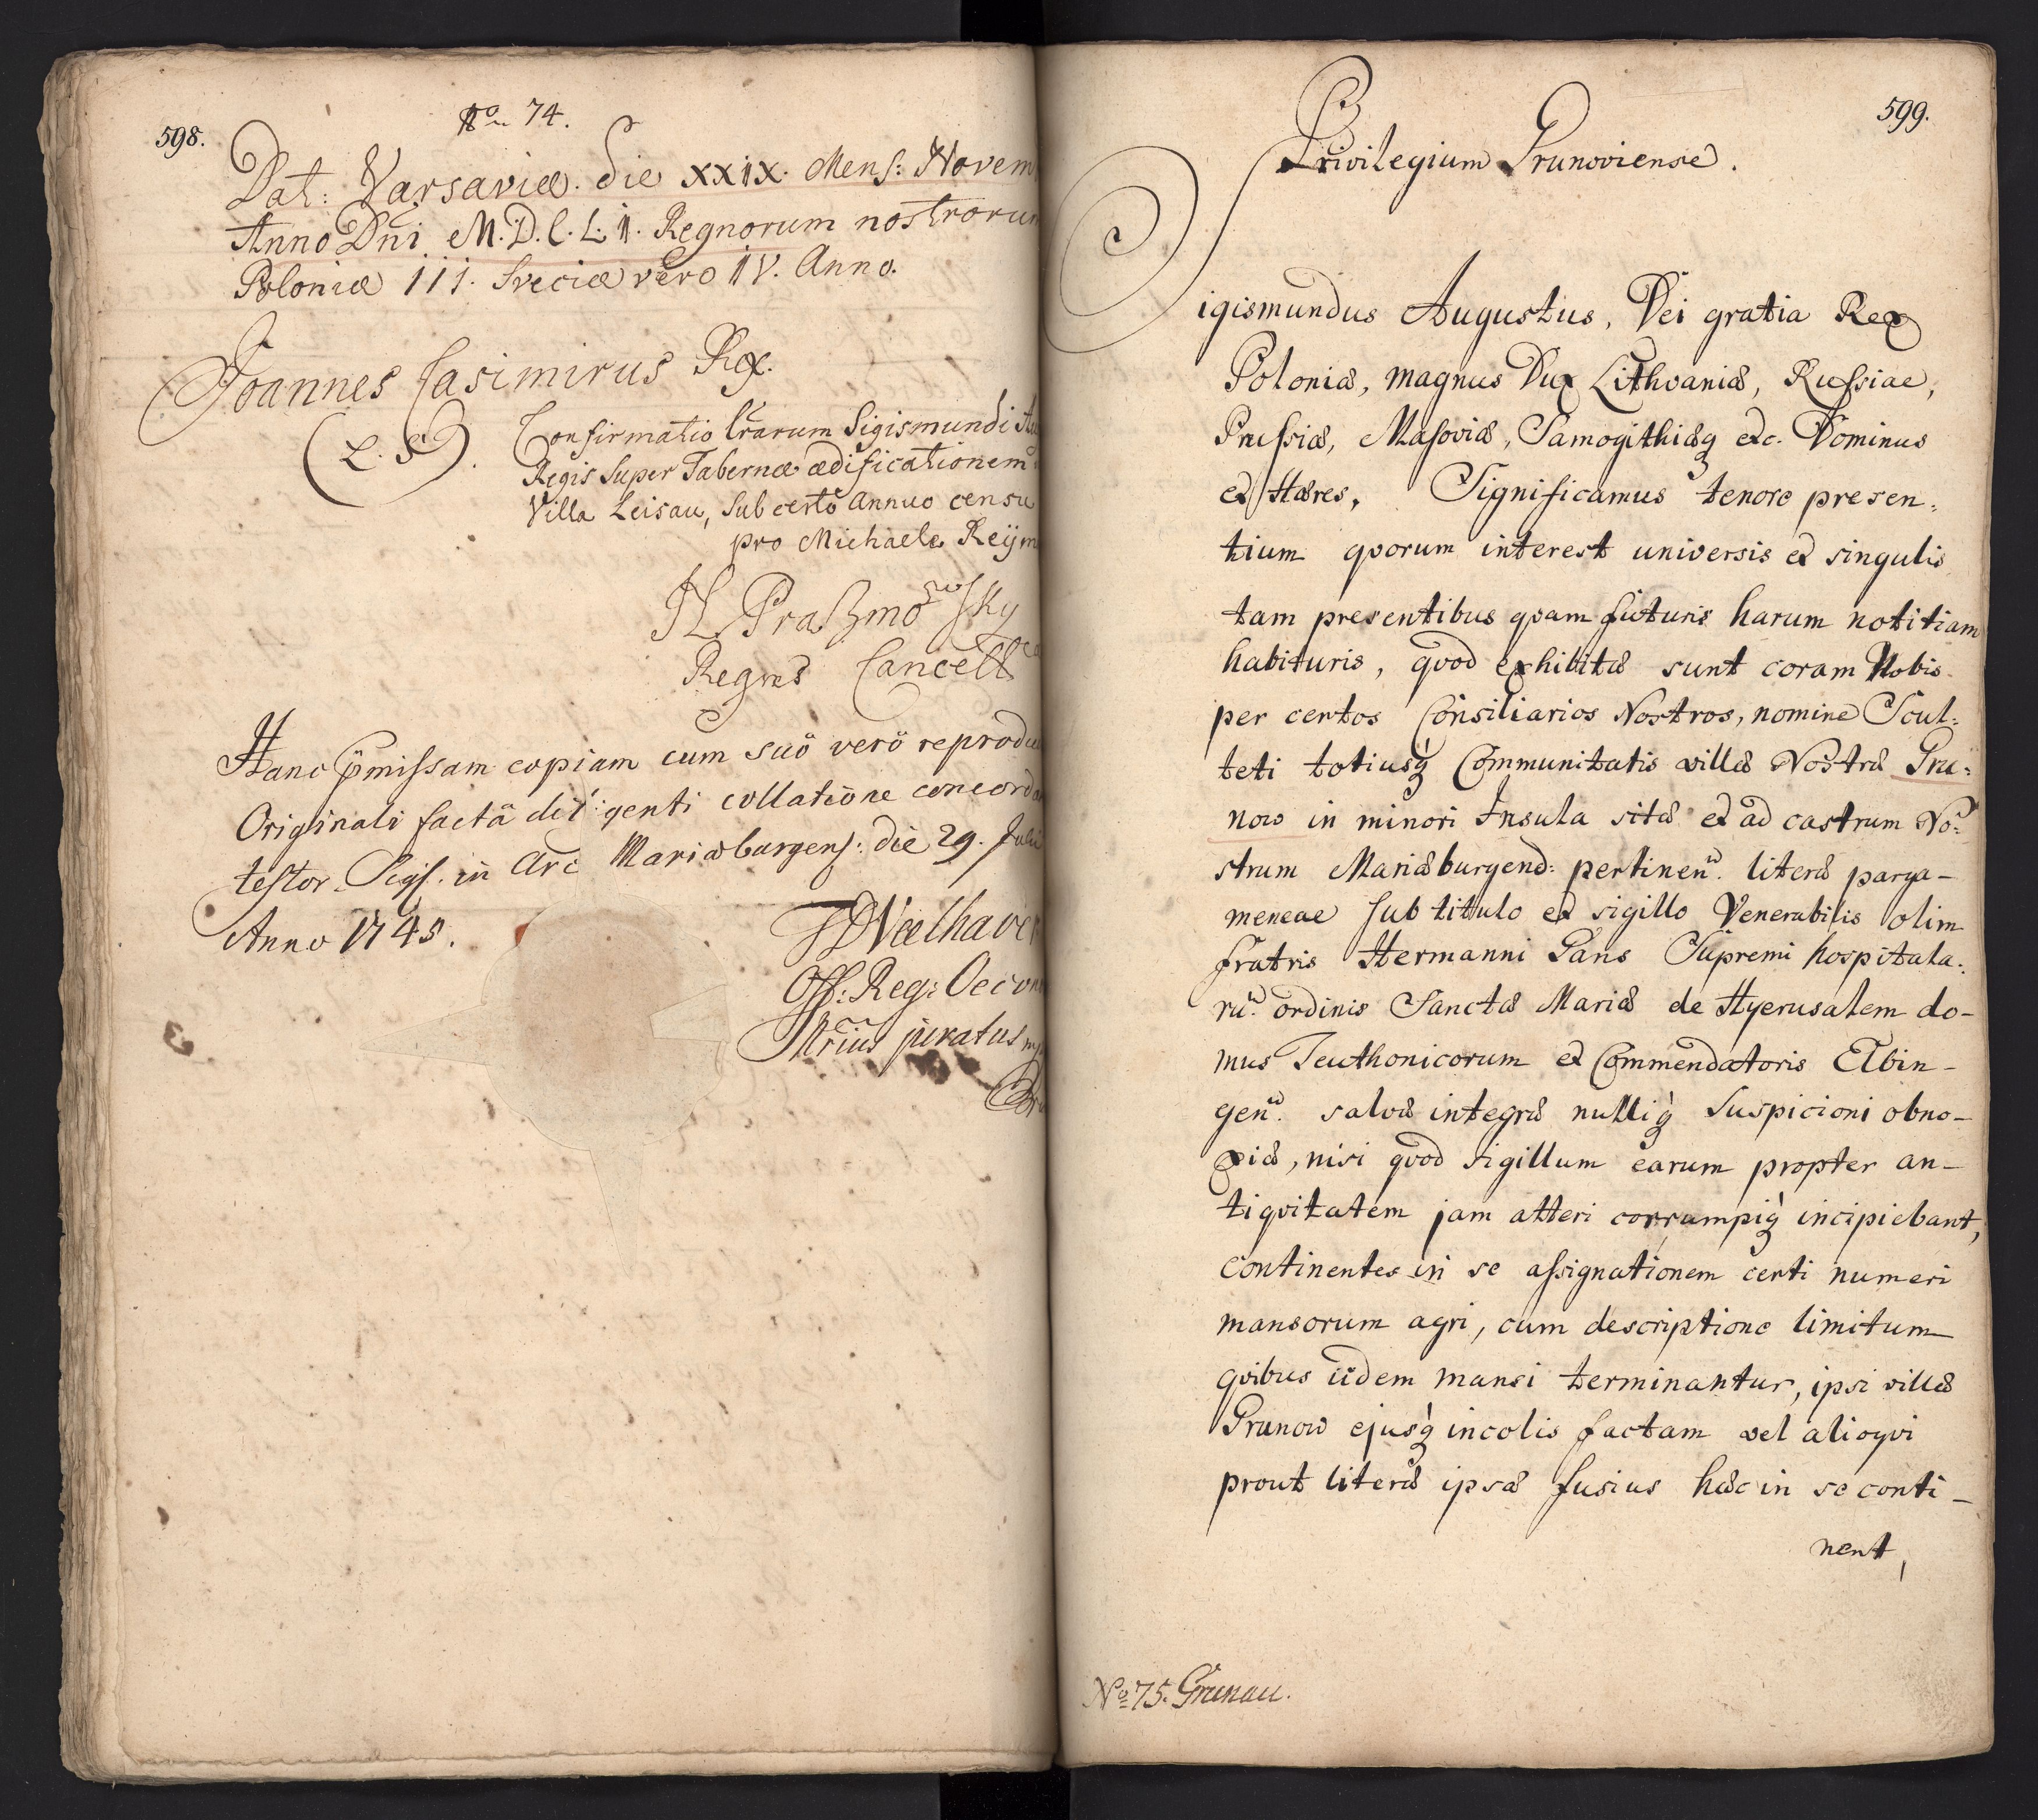 598.
No 74.
Dat: Varsaviæ. die XXIX. Mens: Novem
Anno Dni M.D.C.L.I. Regnorum nostrorum
Poloniæ III. Sveciæ vero IV. Anno.
Joannes Casimirus Rex.
(L.S.)
Confirmatio lrarum Sigismundi
Regis super Tabernæ ædificationem
Villa Leisau, sub certo annuo censu
pro Michaele Reym
Praßmowsky
Regni Cancell
Hanc pmissam copiam cum suô verô reprodu
Originali factâ diligenti collatione concorda
testor. Sigs. in Arc Mariæburgens: die 29. Julii
Anno 1745.
Off: Reg: Oecon
juratus
599.
Privilegium Grunoviense.
Sigismundus Augustus, Dei gratia Rex
Poloniæ, magnus Dux Lithvaniæ, Russiae,
Prussiæ, Masoviæ, Samogithiæq etc. Dominus
et Hæres, Significamus tenore presen:
tium qvorum interest universis et singulis
tam presentibus qvam futuris harum notitiam
habituris, qvod exhibitæ sunt coram Nobis
per certos Consiliarios Nostros, nomine Scul:
teti totiusq Communitatis villæ Nostræ Gru:
now in minori Insula sitæ et ad castrum No:
strum Mariæburgend: pertinen. literæ parga-
meneae sub titulo et sigillo Venerabilis olim
fratris Hermanni Gans Supremi hospitala:
ru. ordinis Sanctæ Mariæ de Hyerusalem do-
mus Teuthonicorum et Commendatoris Elbin-
gen. salvæ integræ nulliq suspicioni obno-
xiæ, nisi qvod sigillum earum propter an-
tiqvitatem jam atteri corrumpiq incipiebant,
continentes in se assignationem certi numeri
mansorum agri, cum descriptione limitum
qvibus iidem mansi terminantur, ipsi villæ
Grunow ejusq incolis factam vel alioqvi
prout literæ ipsæ fusius hæc in se conti-
nent,
No 75. Grunau.